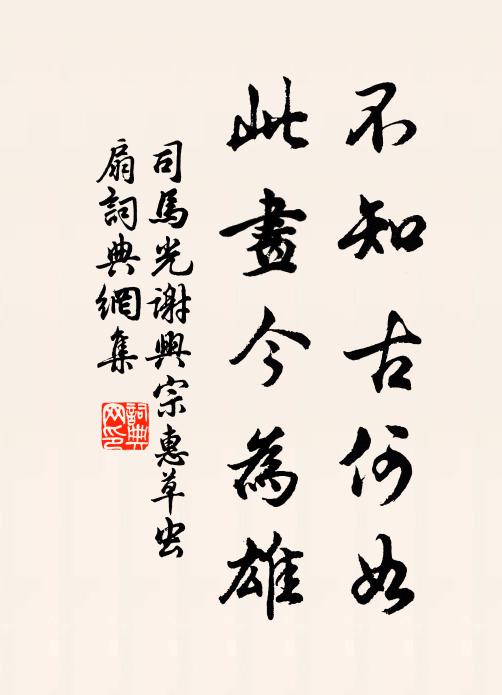 不知古何如
此畫今為雄
司馬光謝興宗惠草虫
扇詞典網集
詞典
网印